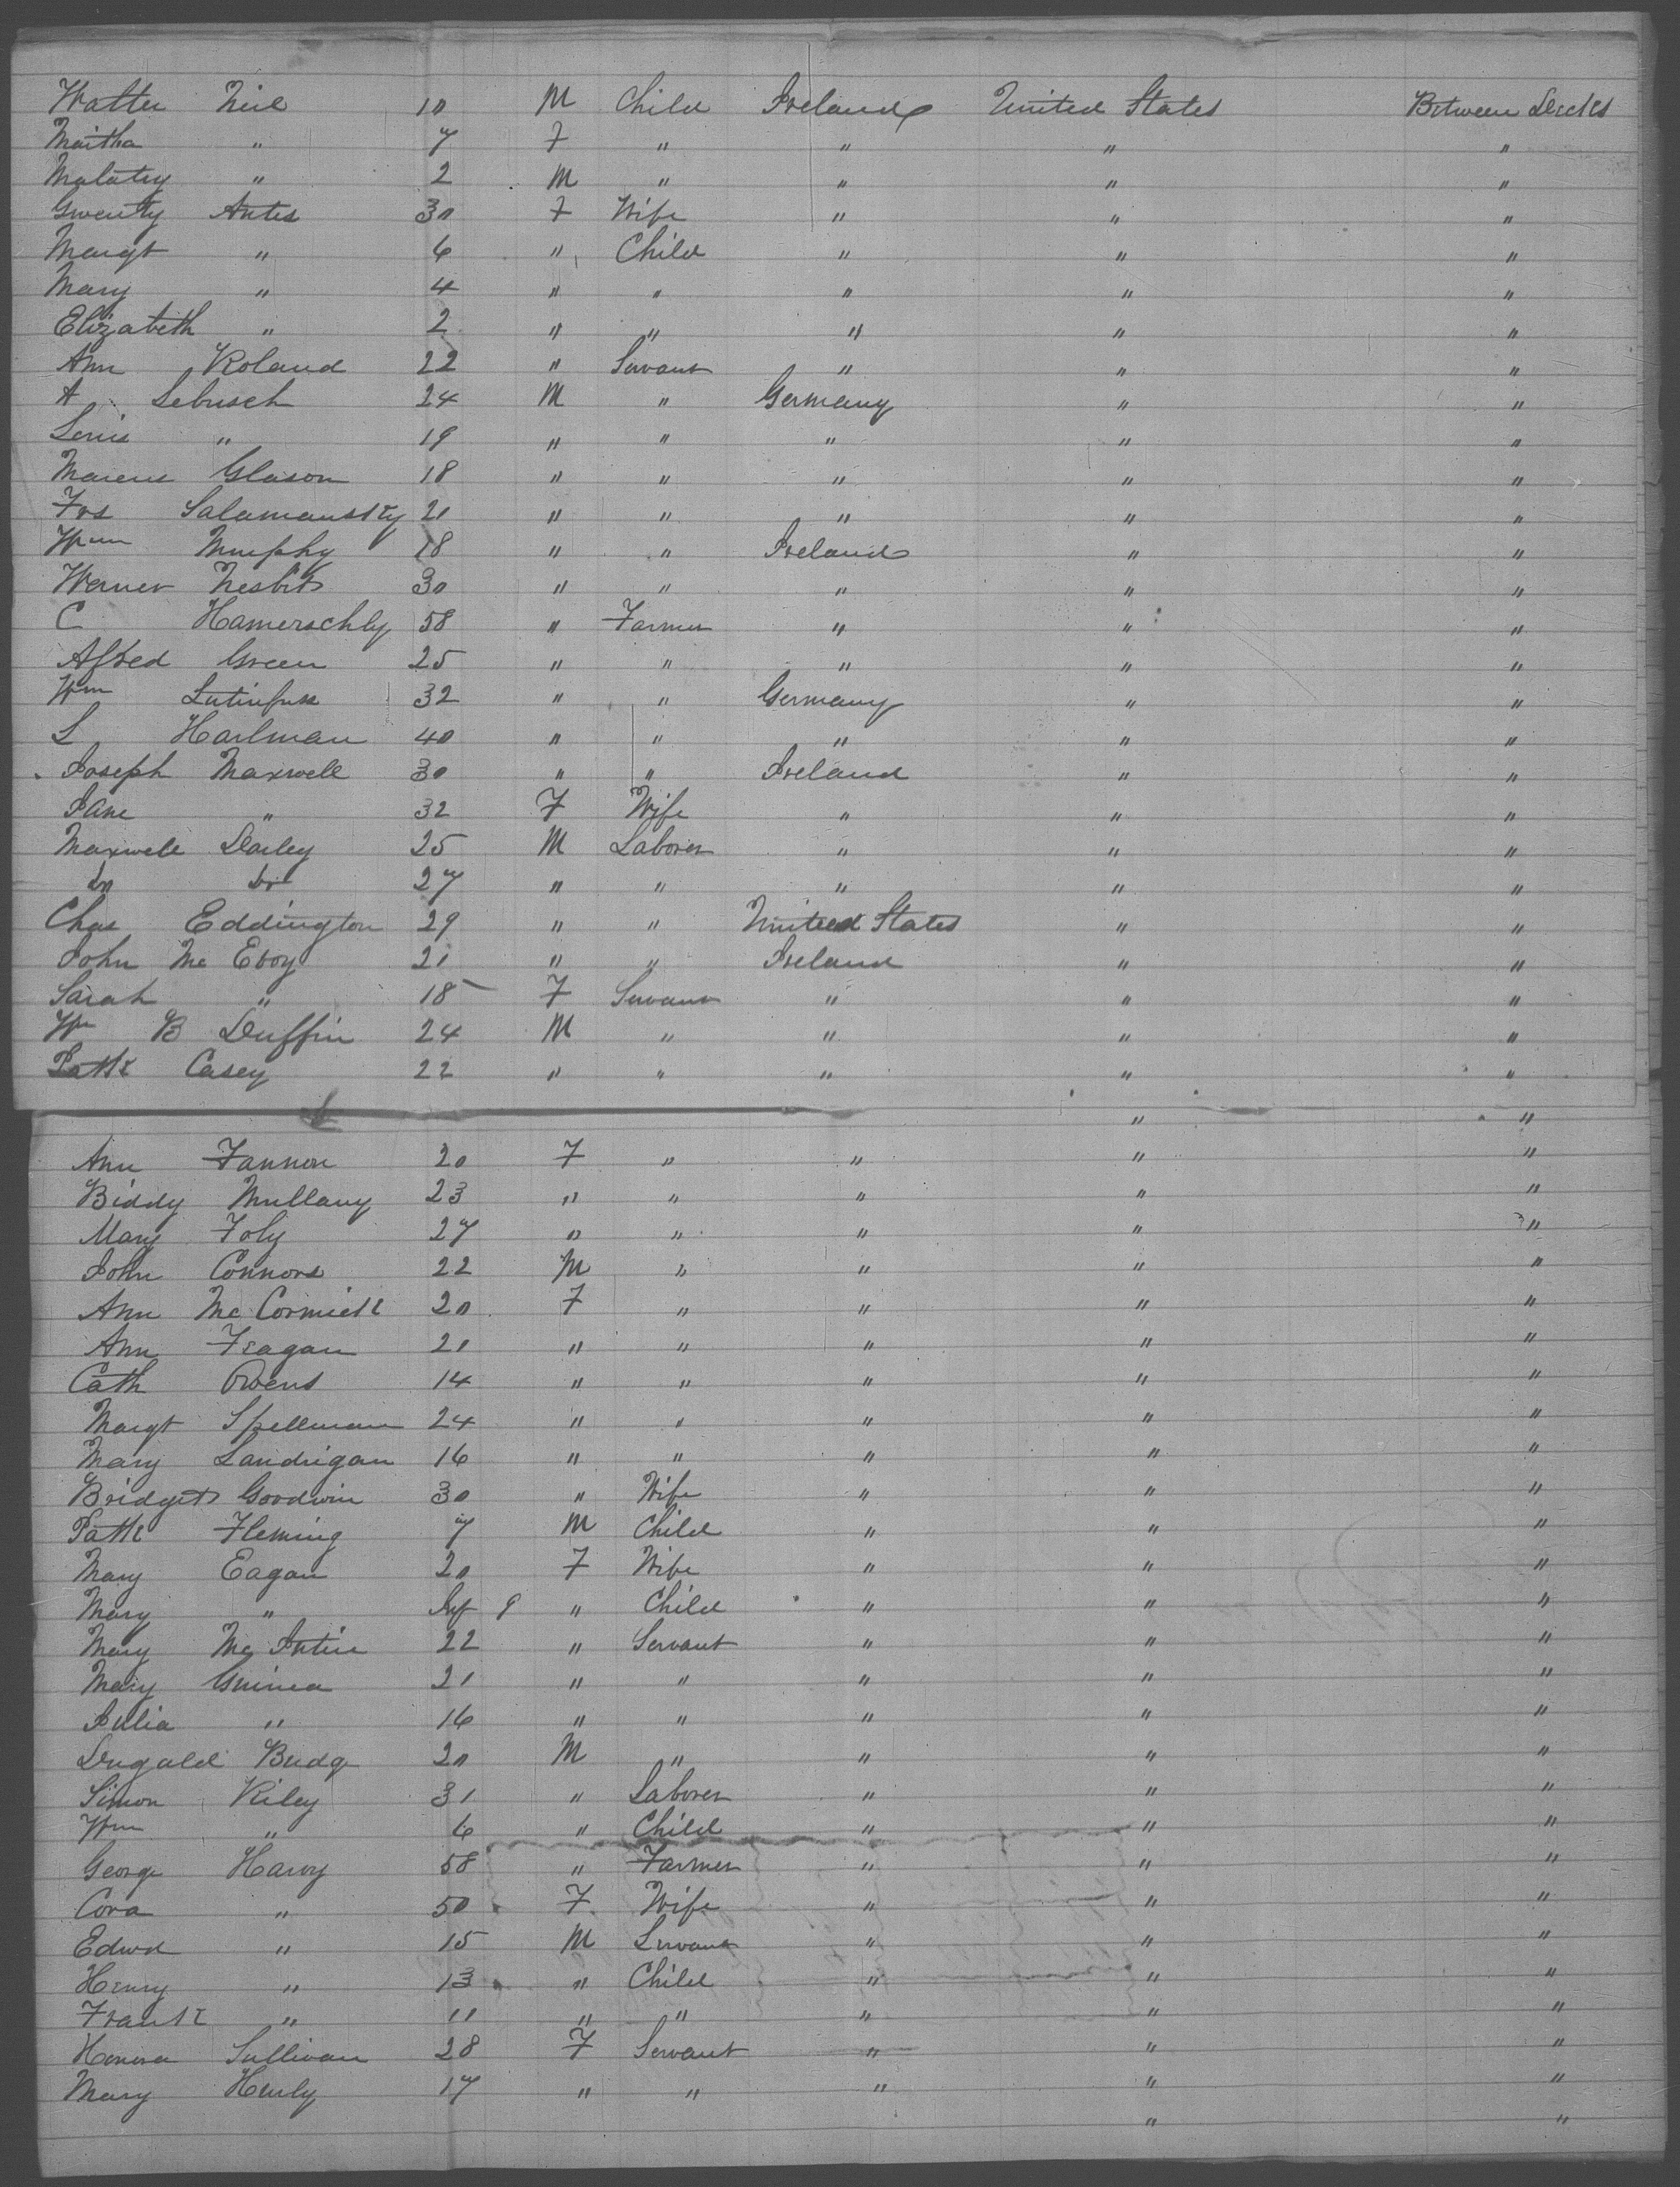 Walter Neil 10 M Child Ireland United States Between Decks
Martha " 7 F " " " "
Malatry " 2 M " " " "
Gwenty Antes 30 F Wife " " "
Margt " 6 " Child " " "
Mary " 4 " " " " "
Elizabeth " 2 " " " " "
Ann Roland 22 " Servant " " "
A Lebusch 24 M " Germany " "
Louis " 19 " " " " "
Marcus Glason 18 " " " " "
Fos Salamansky 21 " " " " "
Wm Murphy 18 " " Ireland " "
Warner Nesbit 30 " " " " "
C Hamerschly 58 " Farmer " " "
Alfred Green 25 " " " " "
Wm 32 " " Germany " "
L Harlman 40 " " " " "
Joseph Maxwell 30 " " Ireland " "
Jane " 32 F Wife " " "
Maxwell Darley 25 M Laborer " " "
Do Do 27 " " " " "
Chas Eddington 29 " " United States " "
John Mc Evoy 21 " " Ireland " "
Sarah " 18 F Servant " " "
Wm B Duffin 24 M " " " "
Patk Casey 22 " " " " "
" "
Ann Fannon 20 F " " " "
Biddy Mullany 23 " " " " "
Mary Foly 27 " " " " "
John Connors 22 M " " " "
Ann Mc Cormick 20 F " " " "
Ann Feagan 21 " " " " "
Cath Owens 14 " " " " "
Margt Spellman 24 " " " " "
Mary Landrigan 16 " " " " "
Bridget Goodwin 30 " Wife " " "
Patk Fleming 7 M Child " " "
Mary Eagan 20 F Wife " " "
Mary " Inf 9 " Child " " "
Mary Mc Intire 22 " Servant " " "
Mary Guinea 21 " " " " "
Julia " 16 " " " " "
Dugald Budg 20 M " " " "
Simon Kiley 31 " Laborer " " "
Wm " 6 " Child " " "
George Harvy 58 " Farmer " " "
Cora " 50 F Wife " " "
Edwd " 15 M Servant " " "
Henry " 13 " Child " " "
Frank " 11 " " " " "
Honora Sullivan 28 F Servant " " "
Mary Henly 17 " " " " "
" "